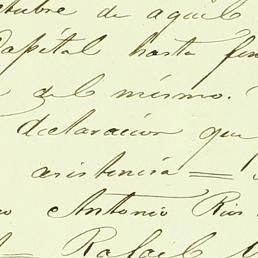 ctubre de aquel
Capital hasta fin
del mismo.
declaracion que
asistencia =
Antonio Rios
= Rafael